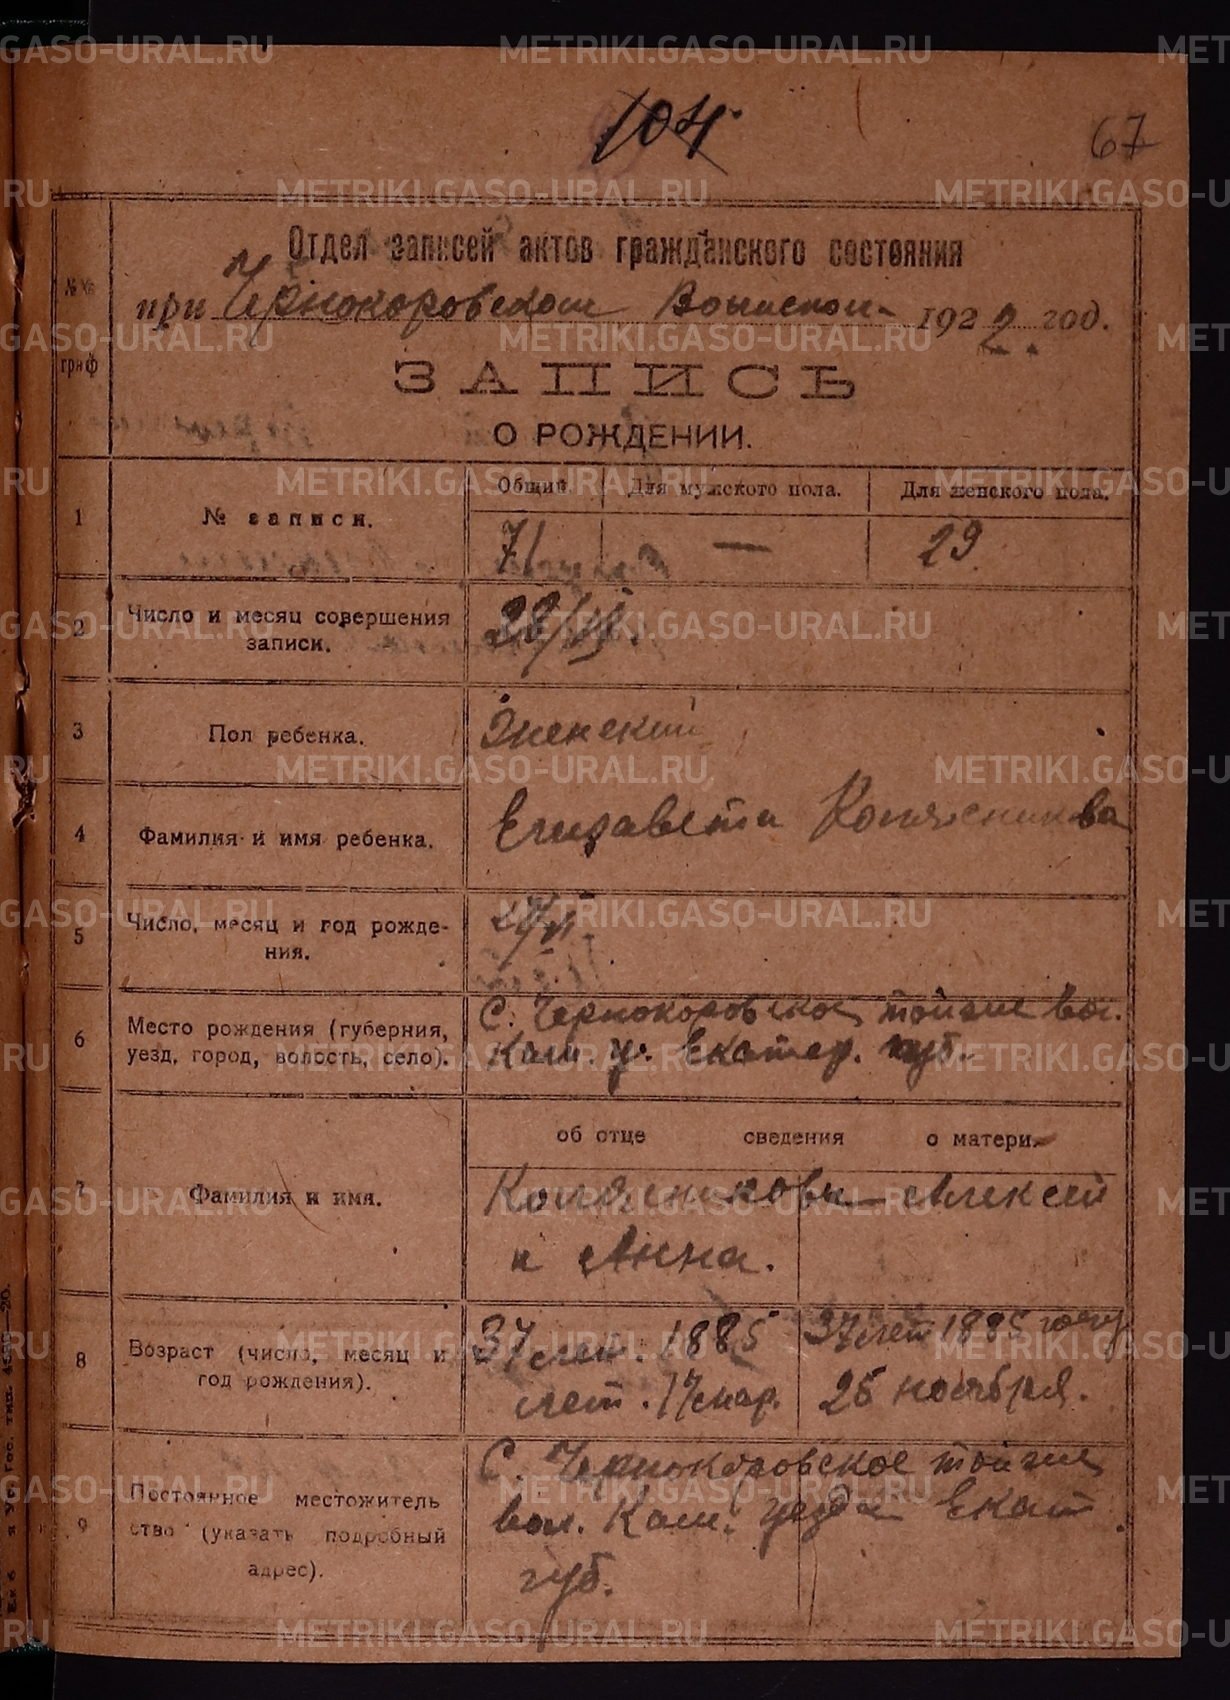 METRIKI.GASO-URAL.RU
104
67
Отдел записей актов гражданского состояния
при Чернокоровском 1922 год.
№№ граф
ЗАПИСЬ
О РОЖДЕНИИ.
Общий. Для мужского пола. Для женского пола.
1 № записи. 71 — 29.
2 Число и месяц совершения
записи.
3 Пол ребенка. Женский
4 Фамилия и имя ребенка. Елизавета
5 Число, месяц и год рожде-
ния.
6 Место рождения (губерния, С. Чернокоровское тойже вол.
уезд, город, волость, село). Кам. у. Екатер. губ.
об отце сведения о матери
7 Фамилия и имя. Алексей
и Анна.
8 Возраст (число, месяц и 37 лет. 1885 37 лет 1885 году
год рождения). лет. 17 мар. 25 ноября.
9 Постоянное местожитель С. Чернокоровское тойже
ство (указать подробный вол. Кам. уезда Екат.
адрес). губ.